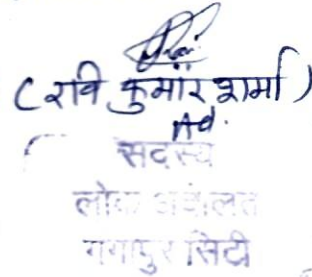 (रवि कुमार शर्मा)
Ad.
सदस्य
लोक अदालत
गंगापुर सिटी